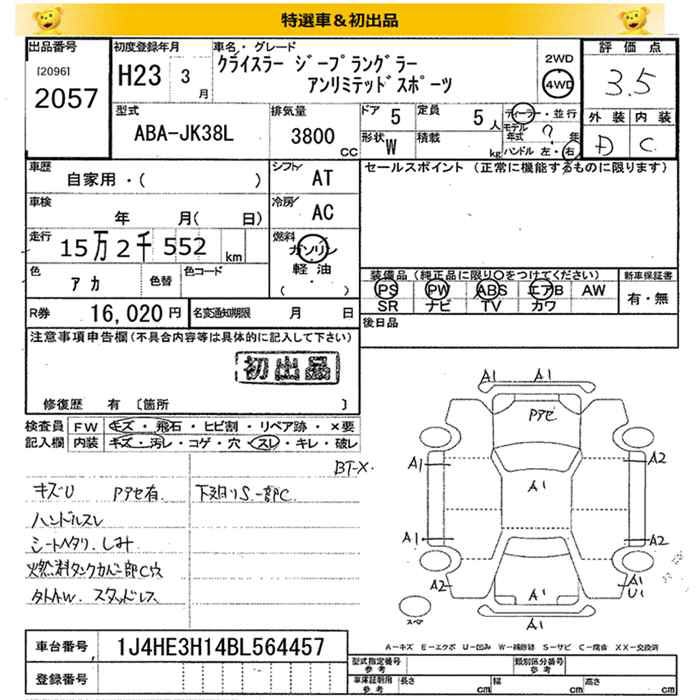 特選車＆初出品
出品番号 初度登録年月 車名・グレード 2WD 評価点
[2096] H23 3月 クライスラー ジープラングラー 4WD 3.5
2057 アンリミテッドスポーツ 外装 内装
型式 排気量 ドア 5 定員 5人 ディーラー・並行 D C
ABA-JK38L 3800 CC 形状 W 積載 kg モデル年式 ? 年
ハンドル 左・右
車歴 シフト セールスポイント（正常に機能するものに限ります）
自家用・( ) AT
車検 冷房
年 月( 日) AC
走行 15万2千552 km 燃料 ガソリン 軽油 ( )
色 アカ 色替 色コード
装備品（純正品に限り○をつけてください） 新車保証書
PS PW ABS エアB AW 有・無
SR ナビ TV カワ
R券 16,020円 名変通知期限 月 日 後日品
注意事項申告欄（不具合内容等は具体的に記入して下さい）
初出品
修復歴 有 〔箇所 〕
検査員 FW キズ・飛石・ヒビ割・リペア跡・×要
記入欄 内装 キズ・汚レ・コゲ・穴・スレ・キレ・破レ
BT-X.
キズU Pアセ有. 下廻りS.一部C
ハンドルスレ
シートヘタリ.しみ
燃料タンクカバー一部C穴
タトAW. スタッドレス
A1 A1
Pアセ
A1 A1 A2
A1 A1 A2
A2 A1 A1 U1
スペア A1
A-キズ E-エクボ U-凹み W-補修跡 S-サビ C-腐食 XX-交換済
車台番号 1J4HE3H14BL564457
登録番号
型式指定番号 参考 類別区分番号 参考
車庫証明用 参考 長さ cm 幅 cm 高さ cm